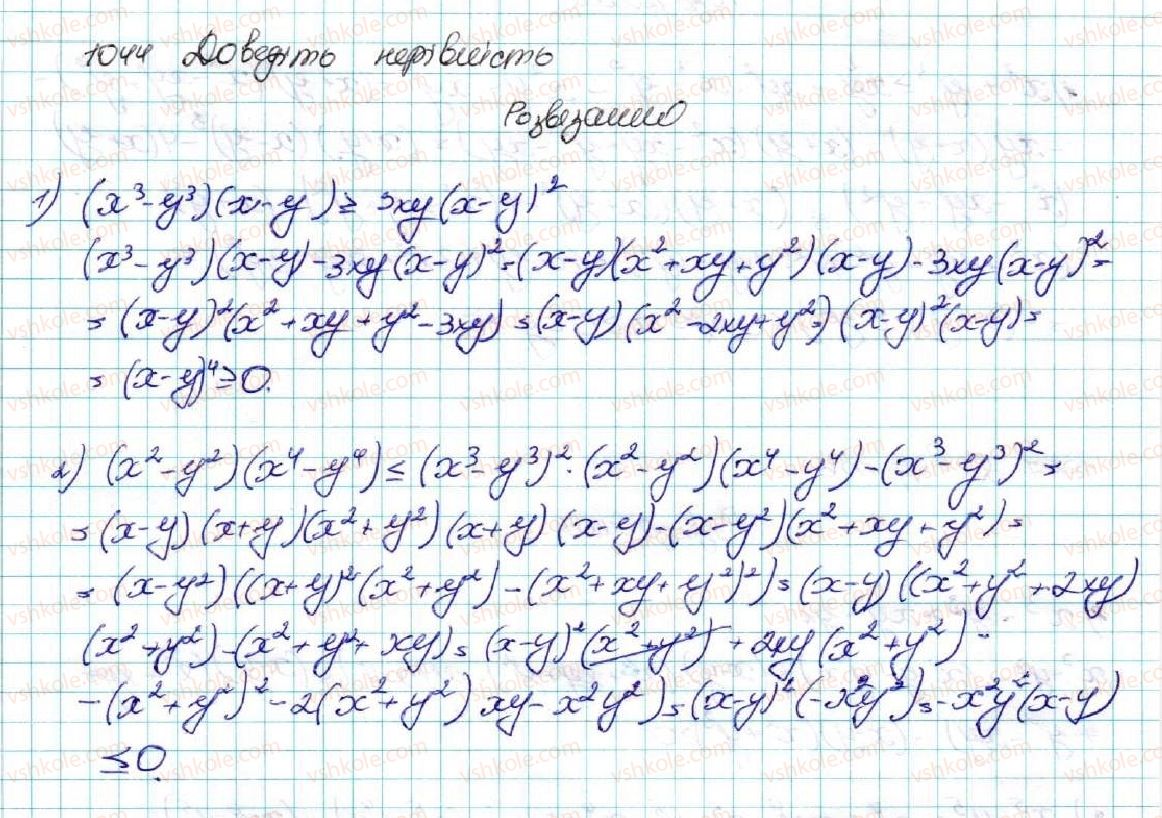 1044 Доведіть нерівність
Розвезанню
1) (x³-y³)(x-y)≥ 3xy(x-y)²
(x³-y³)(x-y)-3xy(x-y)²=(x-y)(x²+xy+y²)(x-y)-3xy(x-y)²=
= (x-y)²(x²+xy+y²-3xy)=(x-y)(x²-2xy+y²=)(x-y)²(x-y)=
= (x-y)⁴≥0.
2) (x²-y²)(x⁴-y⁴)≤(x³-y³)²·(x²-y²)(x⁴-y⁴)-(x³-y³)²=
=(x-y)(x+y)(x²+y²)(x+y)(x-y)-(x-y²)(x²+xy+y²)=
= (x-y²)((x+y)²(x²+y²)-(x²+xy+y²)²)=(x-y)((x²+y²+2xy)
(x²+y²)-(x²+y²+xy)=(x-y)²(x²+y²)+2xy(x²+y²)-
-(x²+y²)²-2(x²+y²)xy-x²y²)=(x-y)²(-x²y²)=-x²y²(x-y)
≤0.